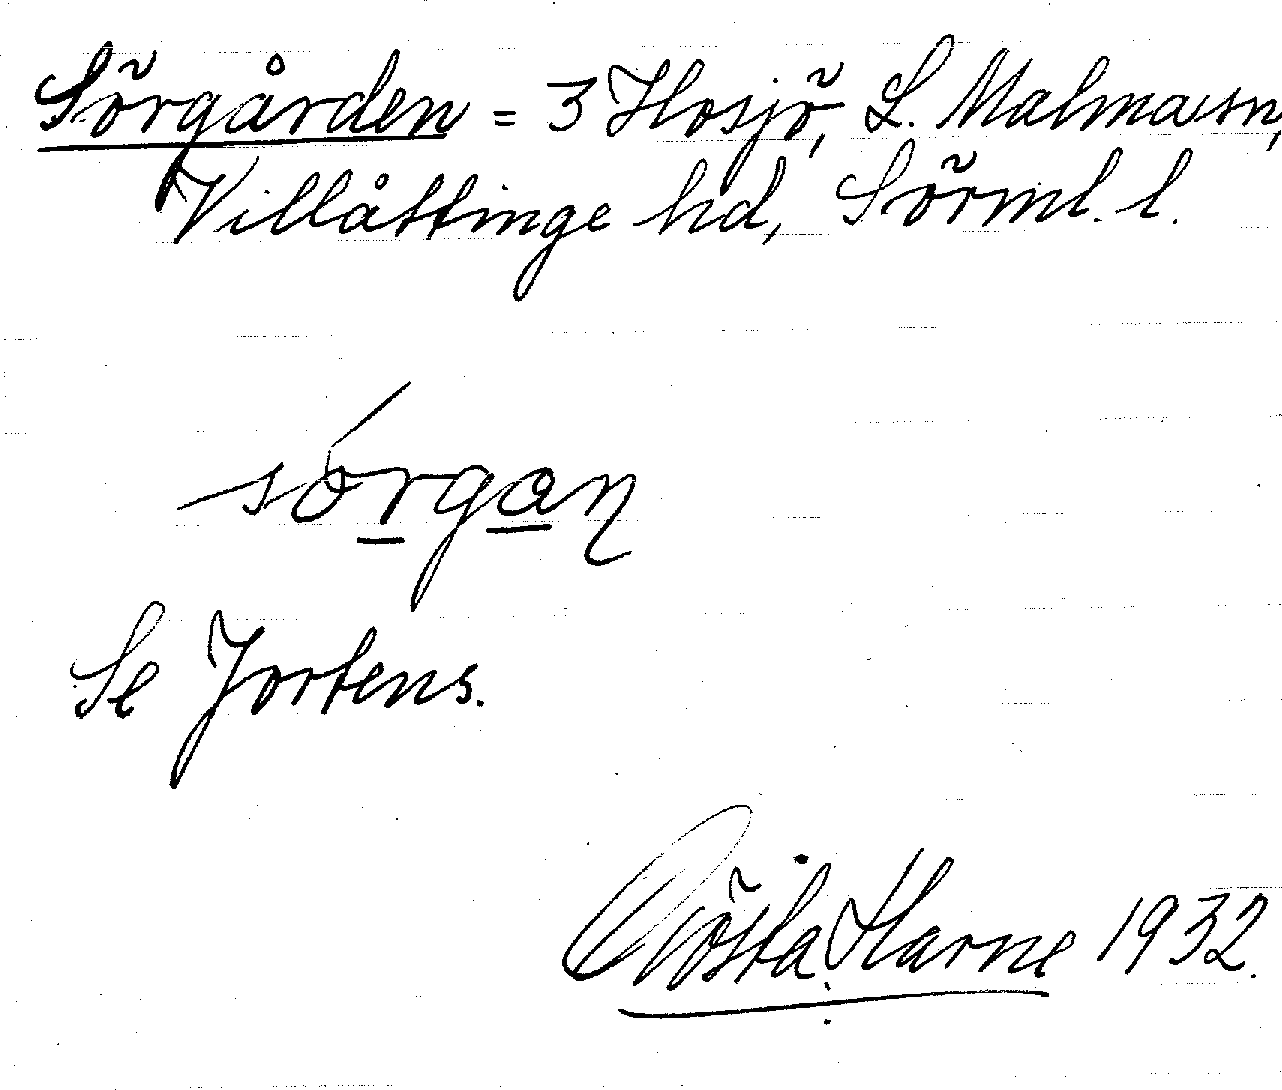 Sörgården = 3 Hosjö, L. Malmasn,
Villåttinge hd, Sörml. l.
sörgan
Se Jortens.
Gösta Harne 1932.